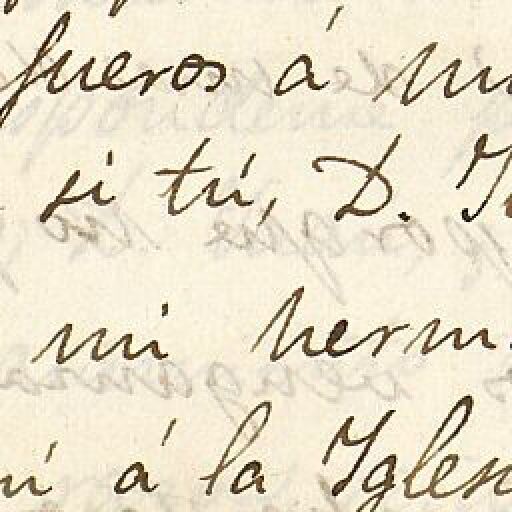 fueros á mi
si tú, D.
mi herm
á la Iglesi